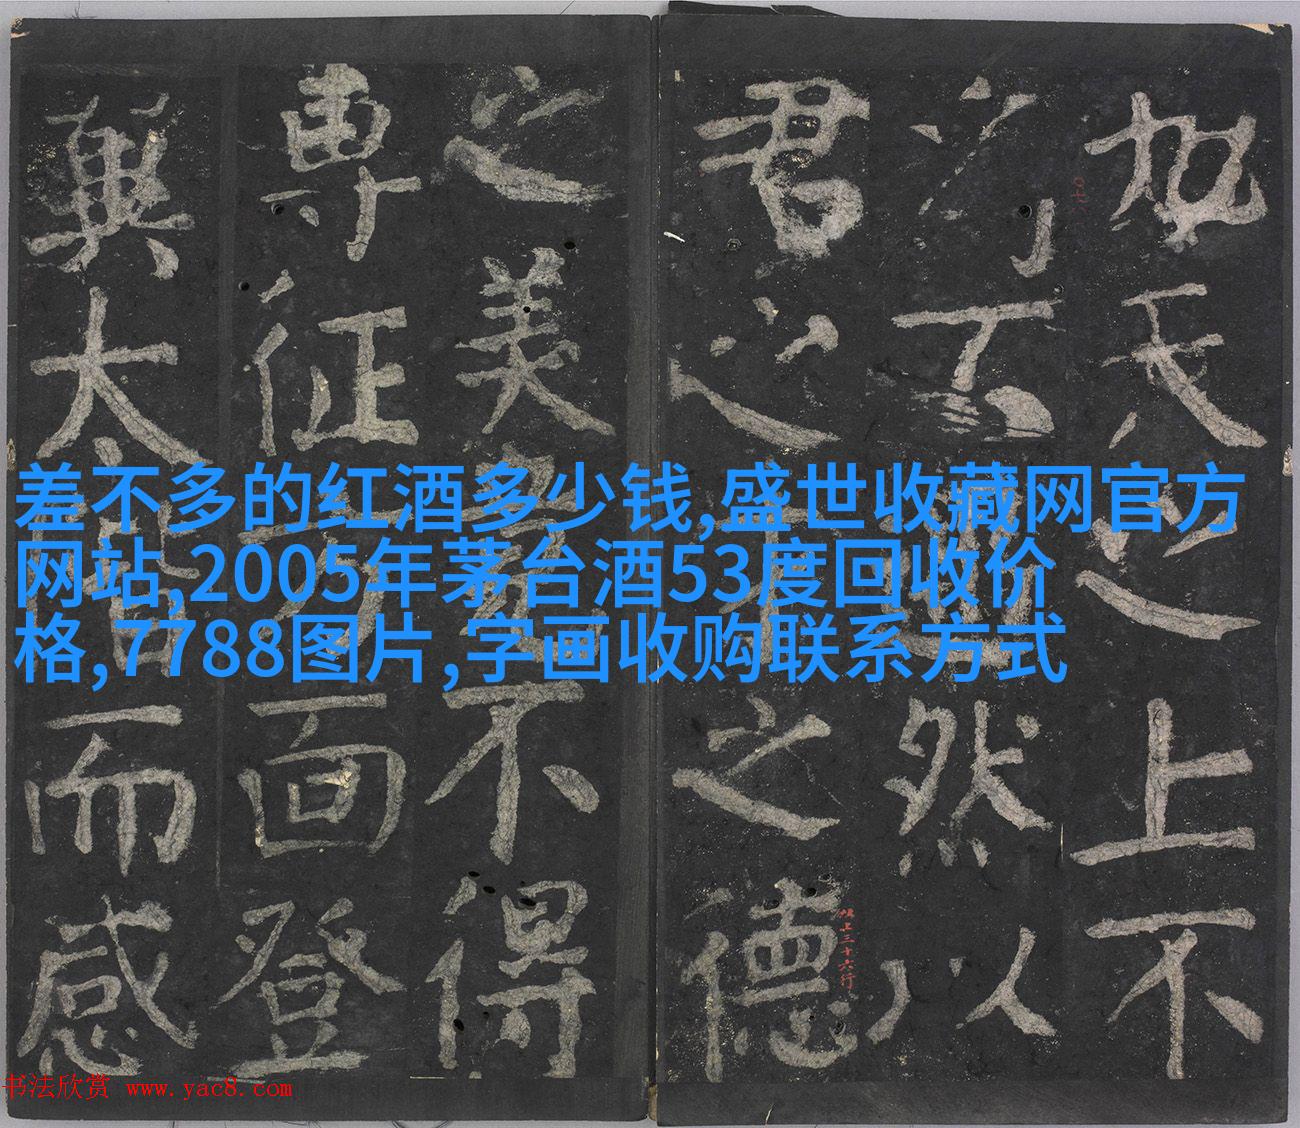 差不多的红酒多少钱,盛世收藏网官方
网站,2005年茅台酒53度回收价
格,7788图片,字画收购联系方式
加之上不
可不然以
君之之德
之美不得
專征面登
太而感
上三十六行
书法欣赏 www.yac8.com